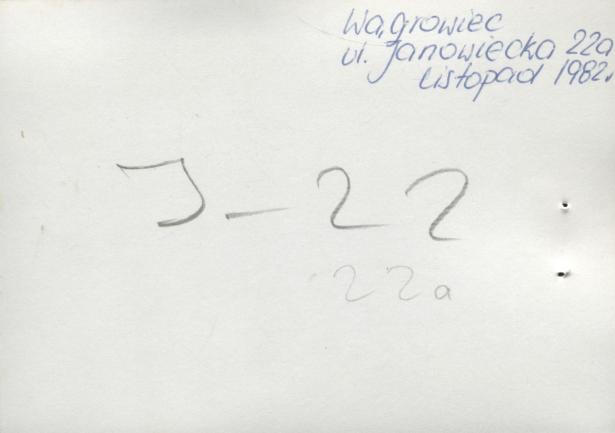 Wągrowiec
ul. Janowiecka 22a
Listopad 1982r.
J-22
22a